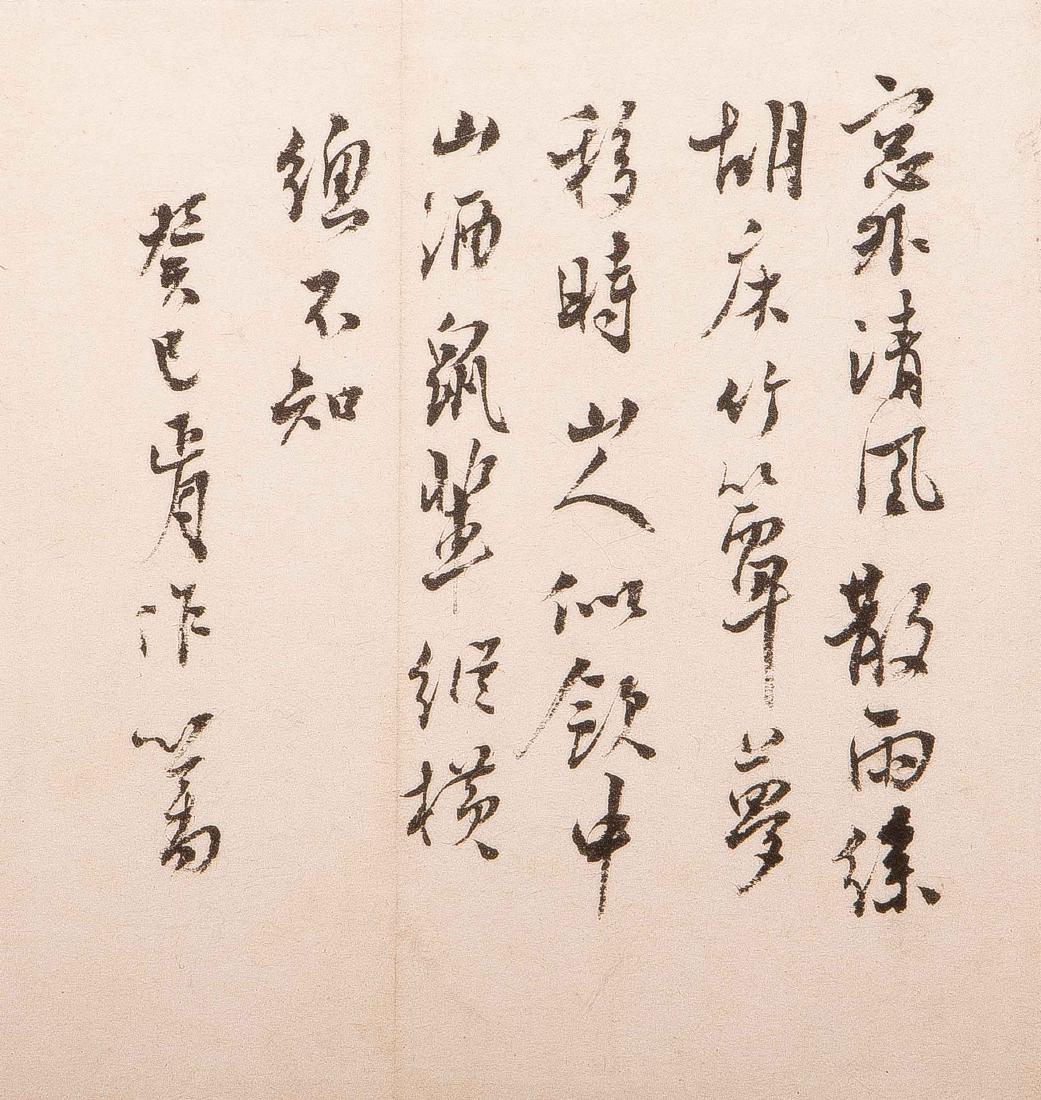 窓外清風散雨絲
胡床竹簟夢
移時山人似飲中
山酒鼠輩縱橫
總不知
癸巳正月作心畬